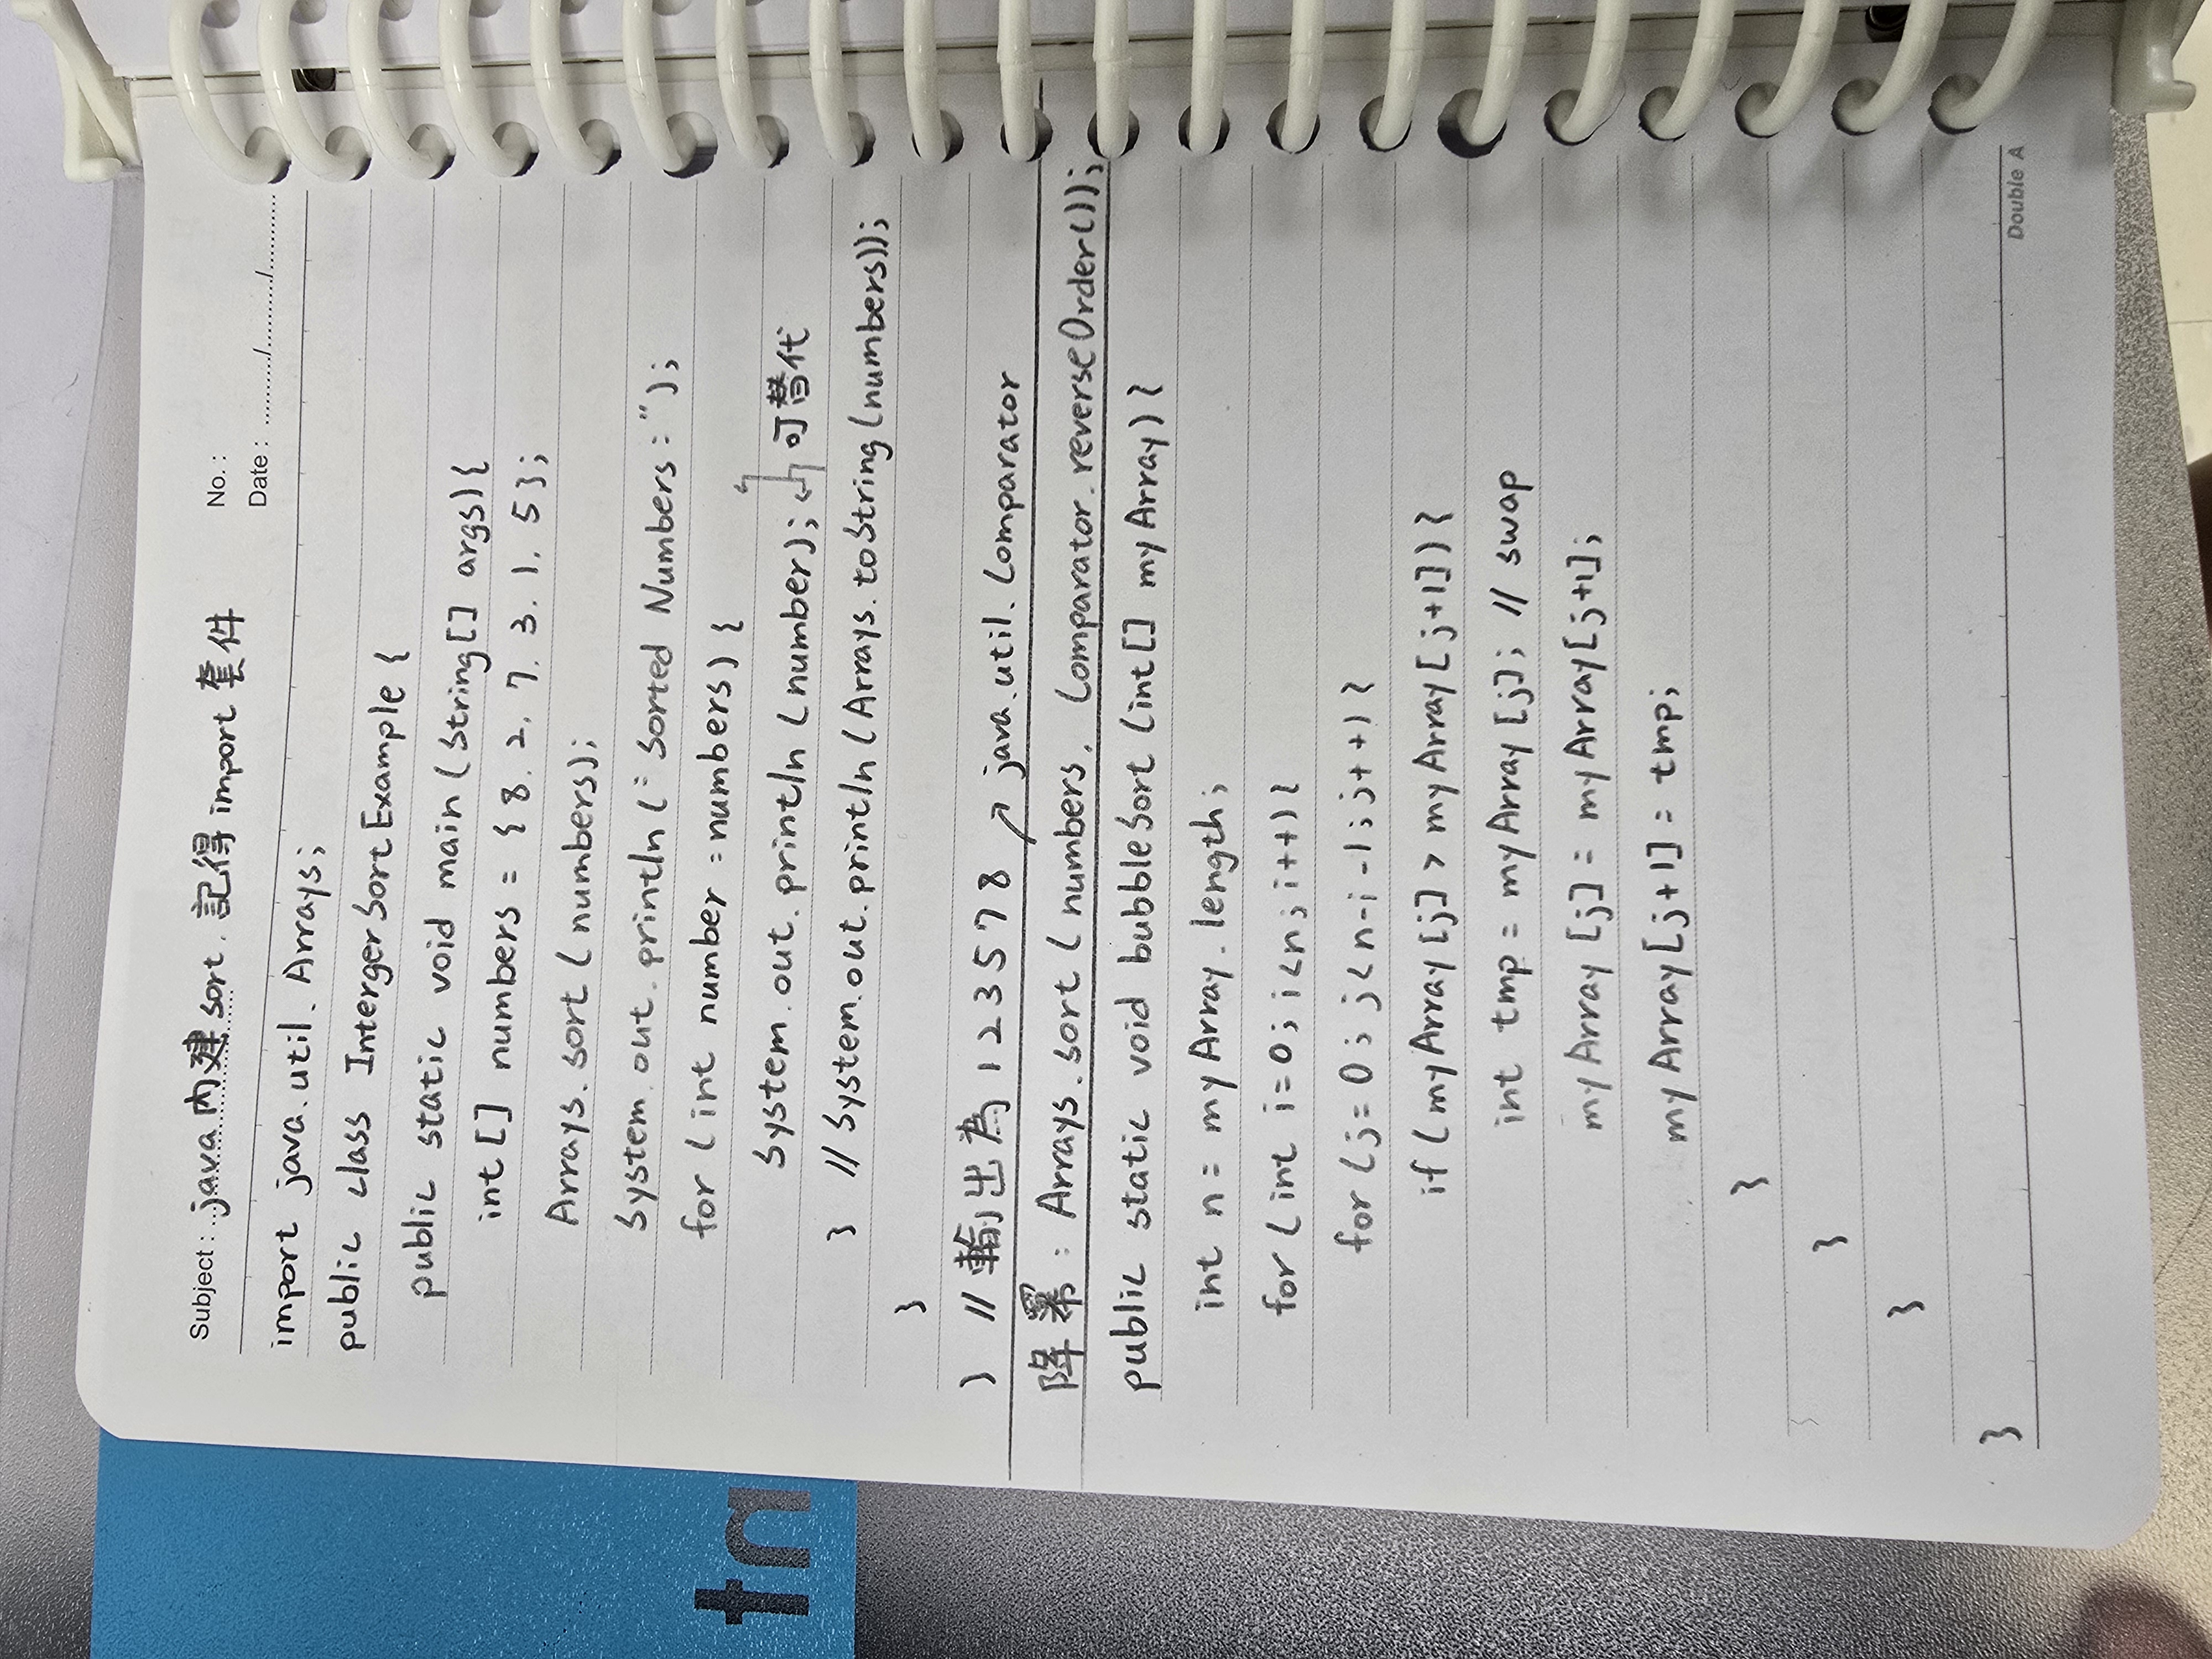 Subject : java 內建 sort. 記得 import 套件
No. :
Date : ........./........./.........
import java.util. Arrays;
public class IntergerSortExample {
public static void main (String[] args) {
int[] numbers = { 8. 2. 7. 3. 1. 5 };
Arrays.sort (numbers);
System.out.println (= Sorted Numbers : ");
for (int number = numbers) {
System.out.println (number); 可替代
} // System.out.println (Arrays.toString (numbers));
}
} // 輸出為 1 2 3 5 7 8 ↗ java.util. Comparator
降冪 : Arrays.sort (numbers. Comparator.reverseOrder());
public static void bubbleSort (int[] myArray) {
int n = myArray.length;
for (int i=0; i<n; i++) {
for (j=0; j<n-i-1; j++) {
if (myArray[j] > myArray[j+1]) {
int tmp = myArray[j]; // swap
myArray[j] = myArray[j+1];
myArray[j+1] = tmp;
}
}
}
}
Double A
tn